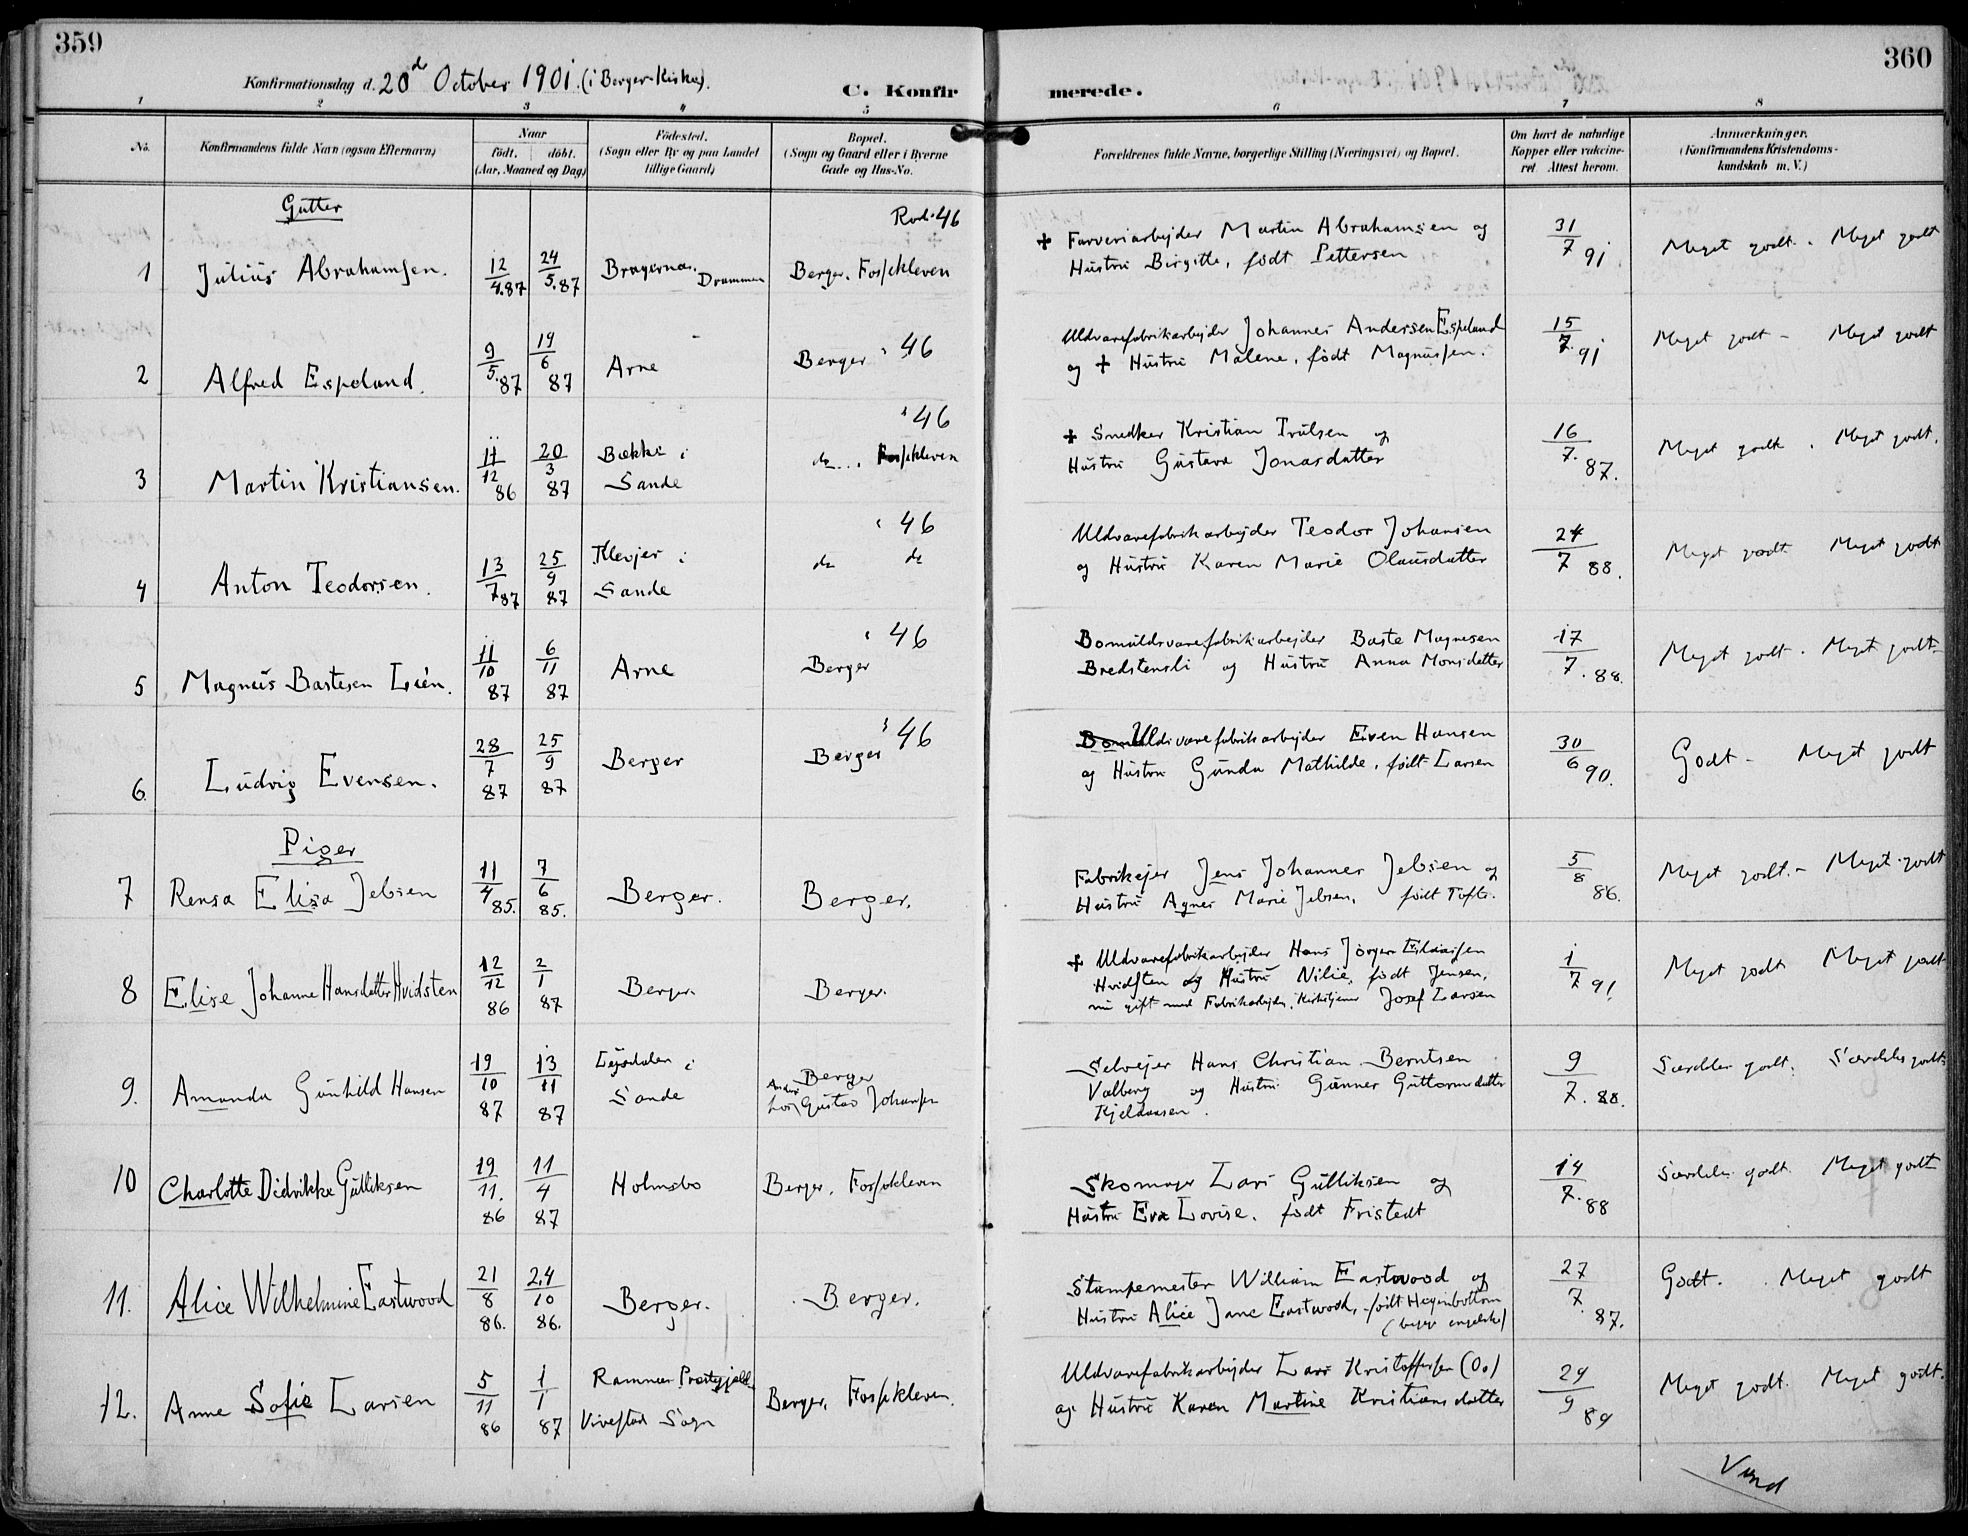 359
360
Konfirmationsdag d. 20d October 1901. (i Berger-Kirke).
C. Konfir
merede.
1 2 3 4 5 6 7 8
No.
Konfirmandens fulde Navn (ogsaa Efternavn)
Naar
födt. döbt.
(Aar, Maaned og Dag)
Födested.
(Sogn eller By og paa Landet
tillige Gaard)
Bopæl.
(Sogn og Gaard eller i Byerne
Gade og Hus-No.
Forældrenes fulde Navne, borgerlige Stilling (Næringsvei) og Bopæl.
Om havt de naturlige
Kopper eller vakcine-
ret. Attest herom.
Anmærkninger.
(Konfirmandens Kristendoms-
kundskab m. V.)
Gutter
1 Julius Abrahamsen. 12/4.87 24/5.87 Bragernæs, Drammen Rod. 46 Berger, Fossekleven
✝ Farveriarbejder Martin Abrahamsen og
Hustru Birgitte, født Pettersen
31/7 91 Meget godt. Meget godt
2 Alfred Espeland. 9/5.87 19/6 87 Arne Berger 46
Uldvarefabrikarbejder Johannes Andersen Espeland
og ✝ Hustru Malene, født Magnussen.
15/7. 91 Meget godt - Meget godt
3 Martin Kristiansen. 11/12 86 20/3 87 Bække i Sande 46 do. Fossekleven
✝ Snedker Kristian Trulsen og
Hustru Gustava Jonasdatter
16/7. 87. Meget godt. Meget godt.
4 Anton Teodorsen. 13/7 87 25/9 87 Klevjer i Sande 46 do do
Uldvarefabrikarbejder Teodor Johansen
og Hustru Karen Marie Olausdatter
24/7 88. Meget godt Meget godt
5 Magnus Bastesen Lien. 11/10 87 6/11 87 Arne 46 Berger
Bomuldsvarefabrikarbejder Baste Magnesen
Bredstensli og Hustru Anna Monsdatter
17/7. 88. Meget godt. Meget godt
6. Ludvig Evensen. 28/7 87 25/9 87 Berger Berger 46
Uldvarefabrikarbejder Even Hansen
og Hustru Gunda Mathilde, født Larsen
30/6 90. Godt - Meget godt
Piger
7 Rensa Elisa Jebsen 11/4 85. 7/6 85. Berger. Berger.
Fabrikejer Jens Johannes Jebsen og
Hustru Agnes Marie Jebsen, født Tofte.
5/8 86. Meget godt. - Meget godt
8 Elise Johanne Hansdatter Hvidsten 12/12 86 2/1 87 Berger. Berger.
✝ Uldvarefabrikarbejder Hans Jörgen
Hvidsten og Hustru Nilie, født Jensen,
nu gift med Fabrikarbejder, Kirketjener Josef Larsen
1/7 91. Meget godt Meget godt
9. Amanda Gunhild Hansen 19/10 87 13/11 87 i Sande Berger
hos Gustav Johansen
Selvejer Hans Christian Berntsen
Valberg og Hustru Gunner Guttormsdatter
Kjeldaasen.
9/7. 88. Særdeles godt. Særdeles godt
10 Charlotte Didrikke Gulliksen 19/11. 86 11/4 87 Holmsbo Berger, Fossekleven
Skomager Lars Gulliksen og
Hustru Eva Lovise, født Fristedt
14/7. 88 Særdeles godt. Meget godt
11. Alice Wilhelmine Eastwood 21/8 86. 24/10 86. Berger. Berger.
Stampemester William Eastwood og
Hustru Alice Jane Eastwood, født Hegenbottom
(begge engelske)
27/7 87. Godt. Meget godt
12. Anne Sofie Larsen 5/11 86 1/1 87 Ramnæs Prestegjeld Vivestad Sogn Berger, Fossekleven.
Uldvarefabrikarbejder Lars Kristoffersen (Oo)
og Hustru Karen Martine Kristiansdatter
24/9 89 Meget godt. Meget godt.
Vend